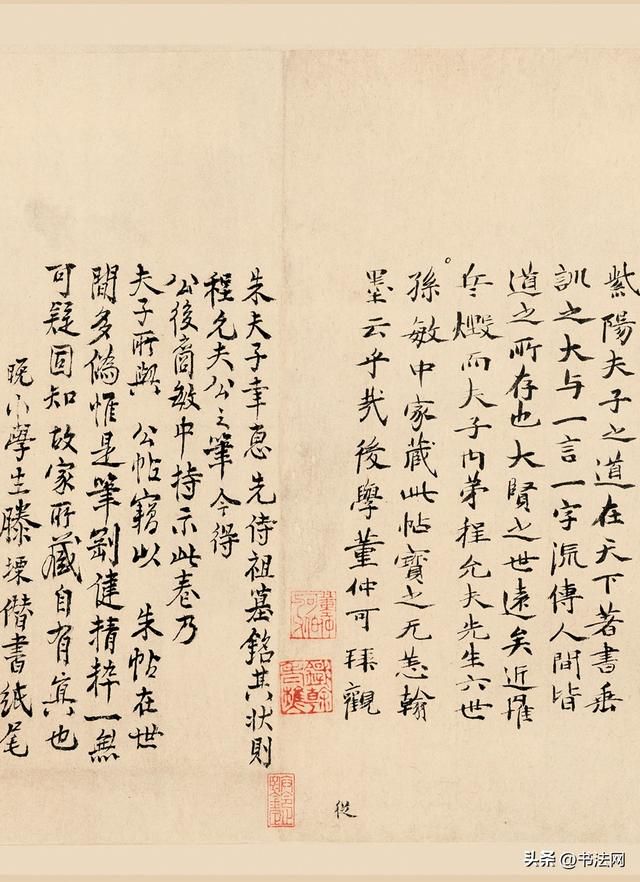 紫陽夫子之道在天下著書垂
訓之大与一言一字流傳人間皆
道之所存也大賢之世遠矣近罹
兵燬而夫子内弟程允夫先生六世
孫敏中家藏此帖寶之无恙翰
墨云乎哉後學董仲可拜觀
從
朱夫子幸惠先侍祖墓銘其状則
程允夫公之筆今得
公後裔敏中持示此卷乃
夫子所與 公帖竊以 朱帖在世
間多偽惟是筆劄健精粹一無
可疑固知故家所藏自有真也
晚小學生滕塛僣書紙尾
头条 @书法网